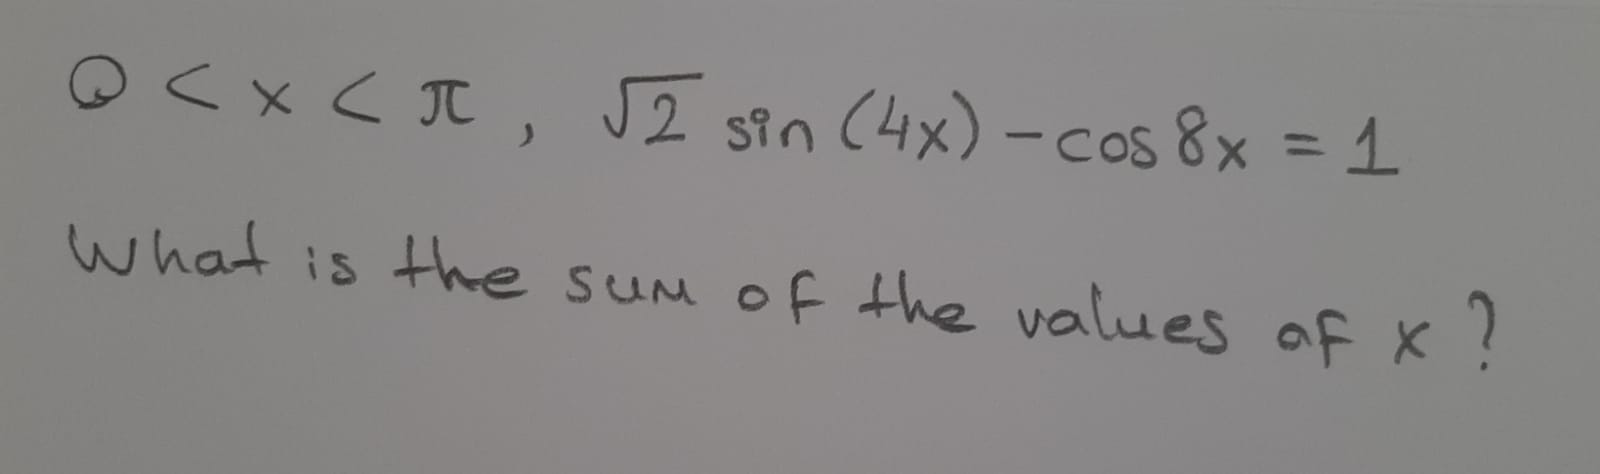 0 < x < π , √2 sin (4x) - cos 8x = 1
What is the sum of the values of x ?